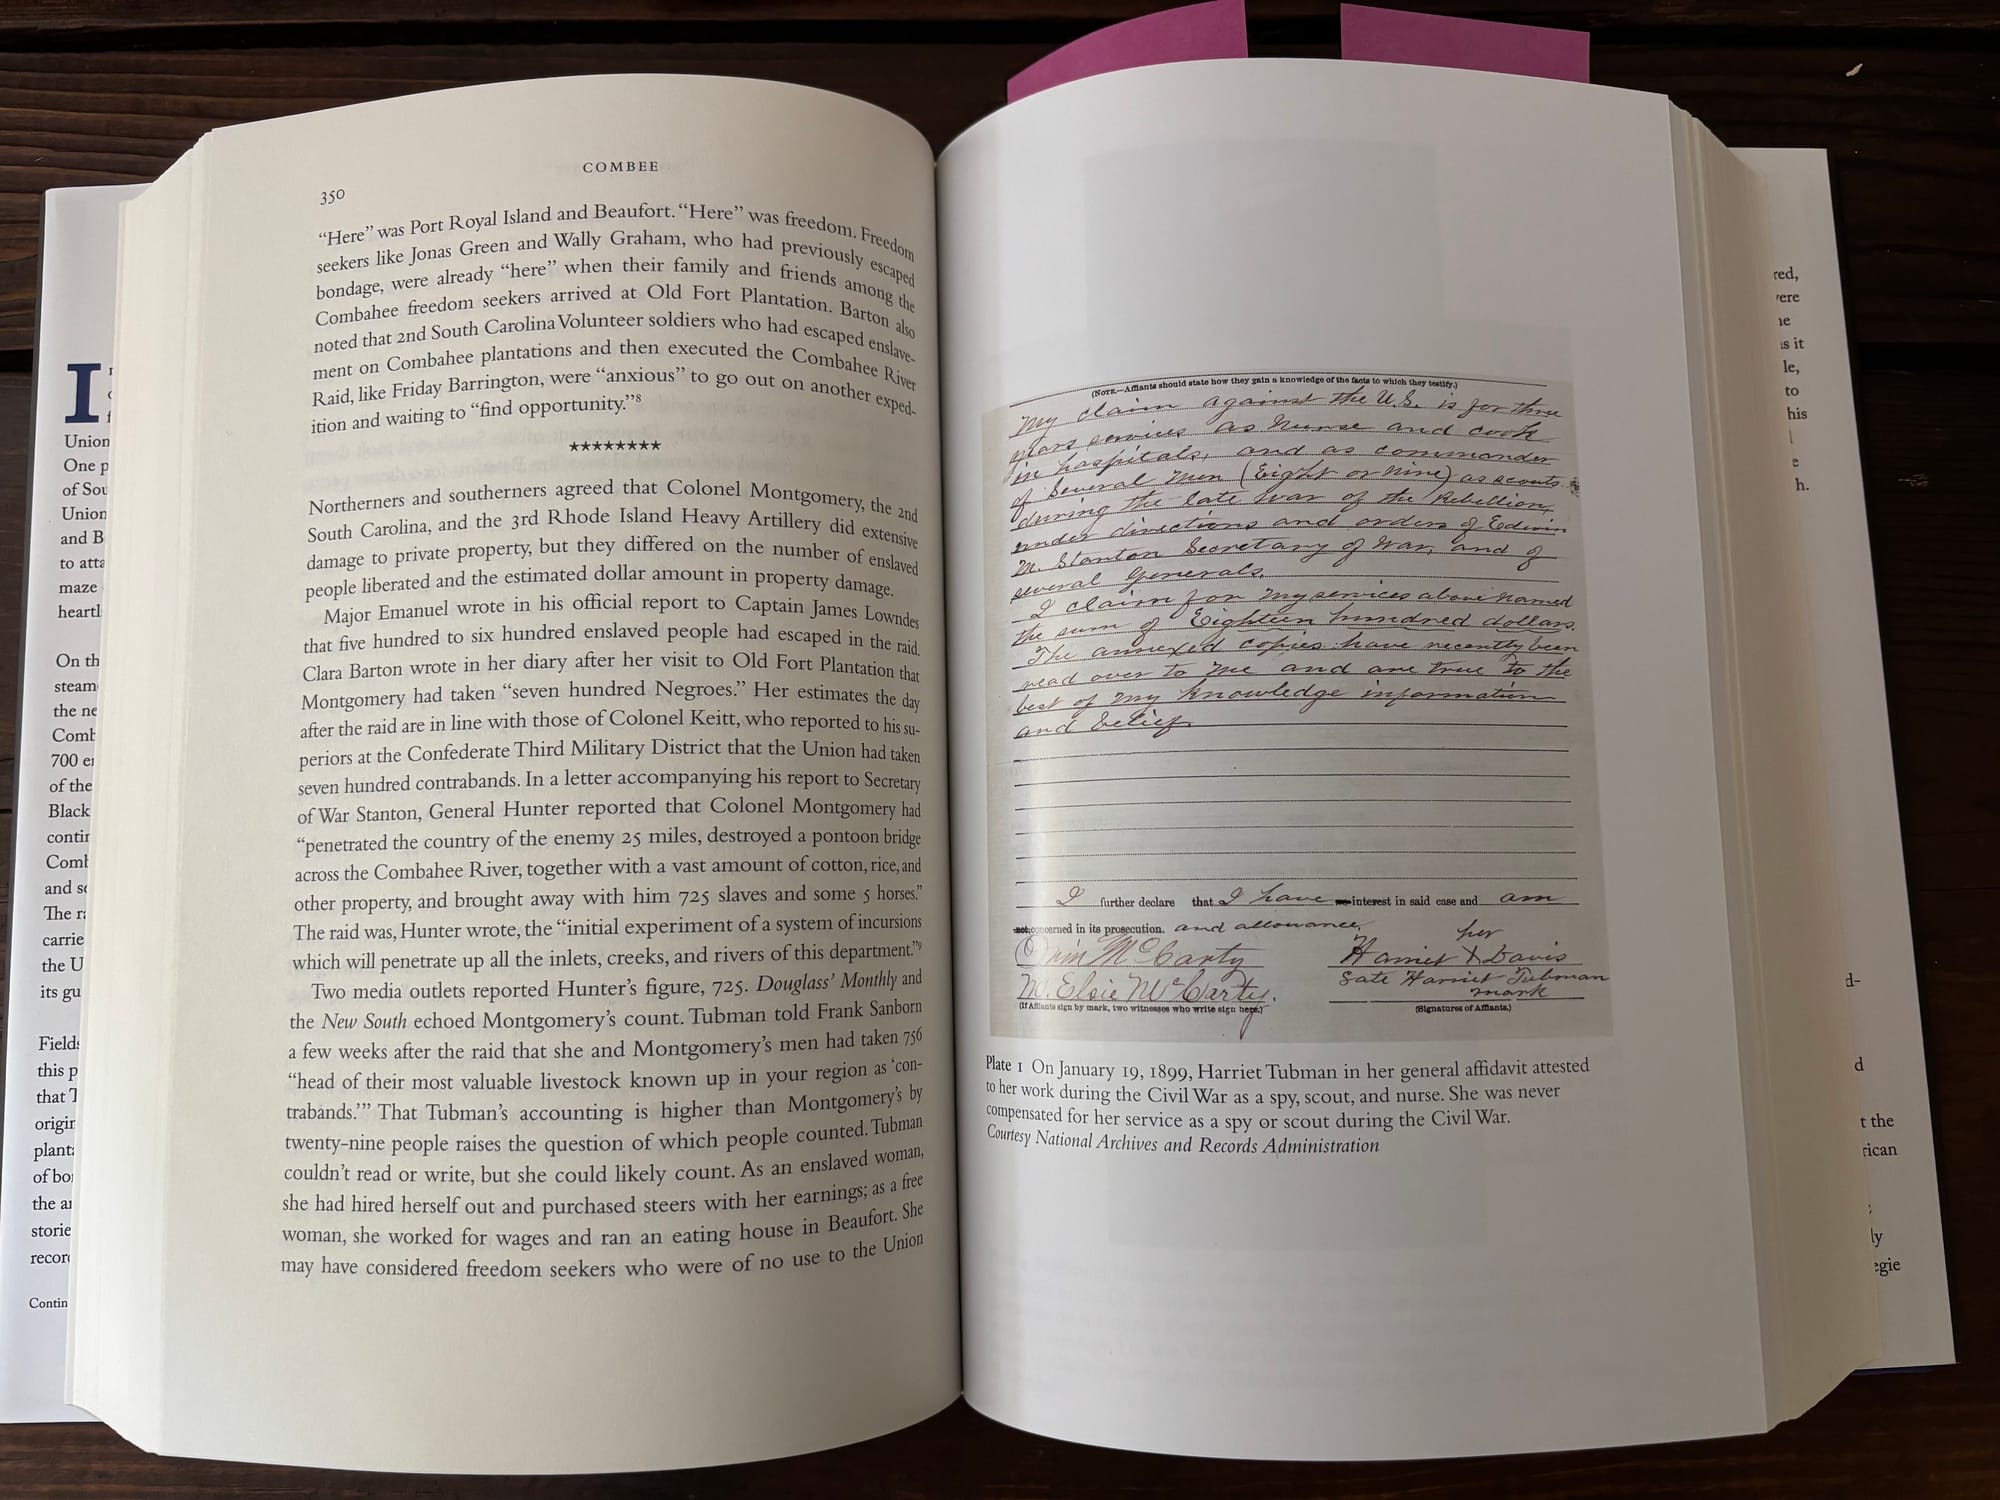 COMBEE
350
“Here” was Port Royal Island and Beaufort. “Here” was freedom. Freedom
seekers like Jonas Green and Wally Graham, who had previously escaped
bondage, were already “here” when their family and friends among the
Combahee freedom seekers arrived at Old Fort Plantation. Barton also
noted that 2nd South Carolina Volunteer soldiers who had escaped enslave-
ment on Combahee plantations and then executed the Combahee River
Raid, like Friday Barrington, were “anxious” to go out on another exped-
ition and waiting to “find opportunity.”8
********
Northerners and southerners agreed that Colonel Montgomery, the 2nd
South Carolina, and the 3rd Rhode Island Heavy Artillery did extensive
damage to private property, but they differed on the number of enslaved
people liberated and the estimated dollar amount in property damage.
Major Emanuel wrote in his official report to Captain James Lowndes
that five hundred to six hundred enslaved people had escaped in the raid.
Clara Barton wrote in her diary after her visit to Old Fort Plantation that
Montgomery had taken “seven hundred Negroes.” Her estimates the day
after the raid are in line with those of Colonel Keitt, who reported to his su-
periors at the Confederate Third Military District that the Union had taken
seven hundred contrabands. In a letter accompanying his report to Secretary
of War Stanton, General Hunter reported that Colonel Montgomery had
“penetrated the country of the enemy 25 miles, destroyed a pontoon bridge
across the Combahee River, together with a vast amount of cotton, rice, and
other property, and brought away with him 725 slaves and some 5 horses.”
The raid was, Hunter wrote, the “initial experiment of a system of incursions
which will penetrate up all the inlets, creeks, and rivers of this department.”9
Two media outlets reported Hunter’s figure, 725. Douglass’ Monthly and
the New South echoed Montgomery’s count. Tubman told Frank Sanborn
a few weeks after the raid that she and Montgomery’s men had taken 756
“head of their most valuable livestock known up in your region as ‘con-
trabands.’” That Tubman’s accounting is higher than Montgomery’s by
twenty-nine people raises the question of which people counted. Tubman
couldn’t read or write, but she could likely count. As an enslaved woman,
she had hired herself out and purchased steers with her earnings; as a free
woman, she worked for wages and ran an eating house in Beaufort. She
may have considered freedom seekers who were of no use to the Union
(NOTE.—Affiants should state how they gain a knowledge of the facts to which they testify.)
My claim against the U.S. is for three
years services as nurse and cook
in hospitals, and as commander
of Several men (Eight or nine) as scouts
during the late war of the Rebellion,
under directions and orders of Edwin
M. Stanton Secretary of War, and of
several Generals.
I claim for my services above named
the sum of Eighteen hundred dollars.
The annexed copies have recently been
read over to me and are true to the
best of my knowledge information
and belief.
I further declare that I have no interest in said case and am
not concerned in its prosecution. and allowance.
Orin McCarty
M. Elsie McCarty.
(If Affiants sign by mark, two witnesses who write sign here.)
her
Harriet X Davis
late Harriet Tubman
mark
(Signatures of Affiants.)
Plate 1 On January 19, 1899, Harriet Tubman in her general affidavit attested
to her work during the Civil War as a spy, scout, and nurse. She was never
compensated for her service as a spy or scout during the Civil War.
Courtesy National Archives and Records Administration
I
Union
One p
of Sou
Union
and B
to atta
maze
heartl
On th
steam
the ne
Comb
700 e
of the
Black
contin
Comb
and s
The r
carrie
the U
its gu
Fields
this p
that T
origin
plant
of bo
the a
storie
recor
Contin
red,
vere
ne
is it
le,
to
his
e
h.
d-
d
t the
rican
ly
egie